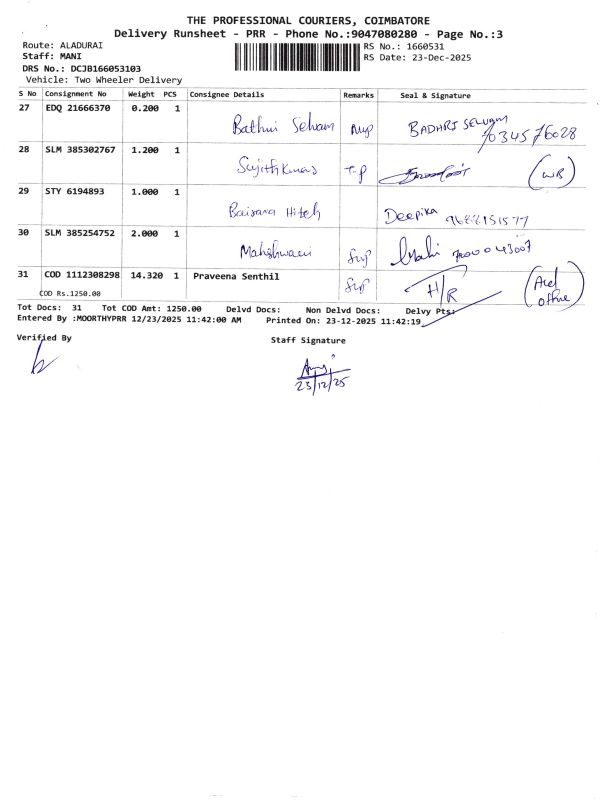 THE PROFESSIONAL COURIERS, COIMBATORE
Delivery Runsheet - PRR - Phone No.:9047080280 - Page No.:3
Route: ALADURAI
RS No.: 1660531
Staff: MANI
RS Date: 23-Dec-2025
DRS No.: DCJB166053103
Vehicle: Two Wheeler Delivery
S No Consignment No Weight PCS Consignee Details Remarks Seal & Signature
27 EDQ 21666370 0.200 1 Selvam BADHRI SELVAM
28 SLM 385302767 1.200 1 Sujith Kumar T-P (WB)
29 STY 6194893 1.000 1 Hitech Deepika
30 SLM 385254752 2.000 1 Maheshwari Mahi
31 COD 1112308298 14.320 1 Praveena Senthil H/R
COD Rs.1250.00
Tot Docs: 31 Tot COD Amt: 1250.00 Delvd Docs: Non Delvd Docs: Delvy Pts:
Entered By :MOORTHYPRR 12/23/2025 11:42:00 AM Printed On: 23-12-2025 11:42:19
Verified By
Staff Signature
23/12/25